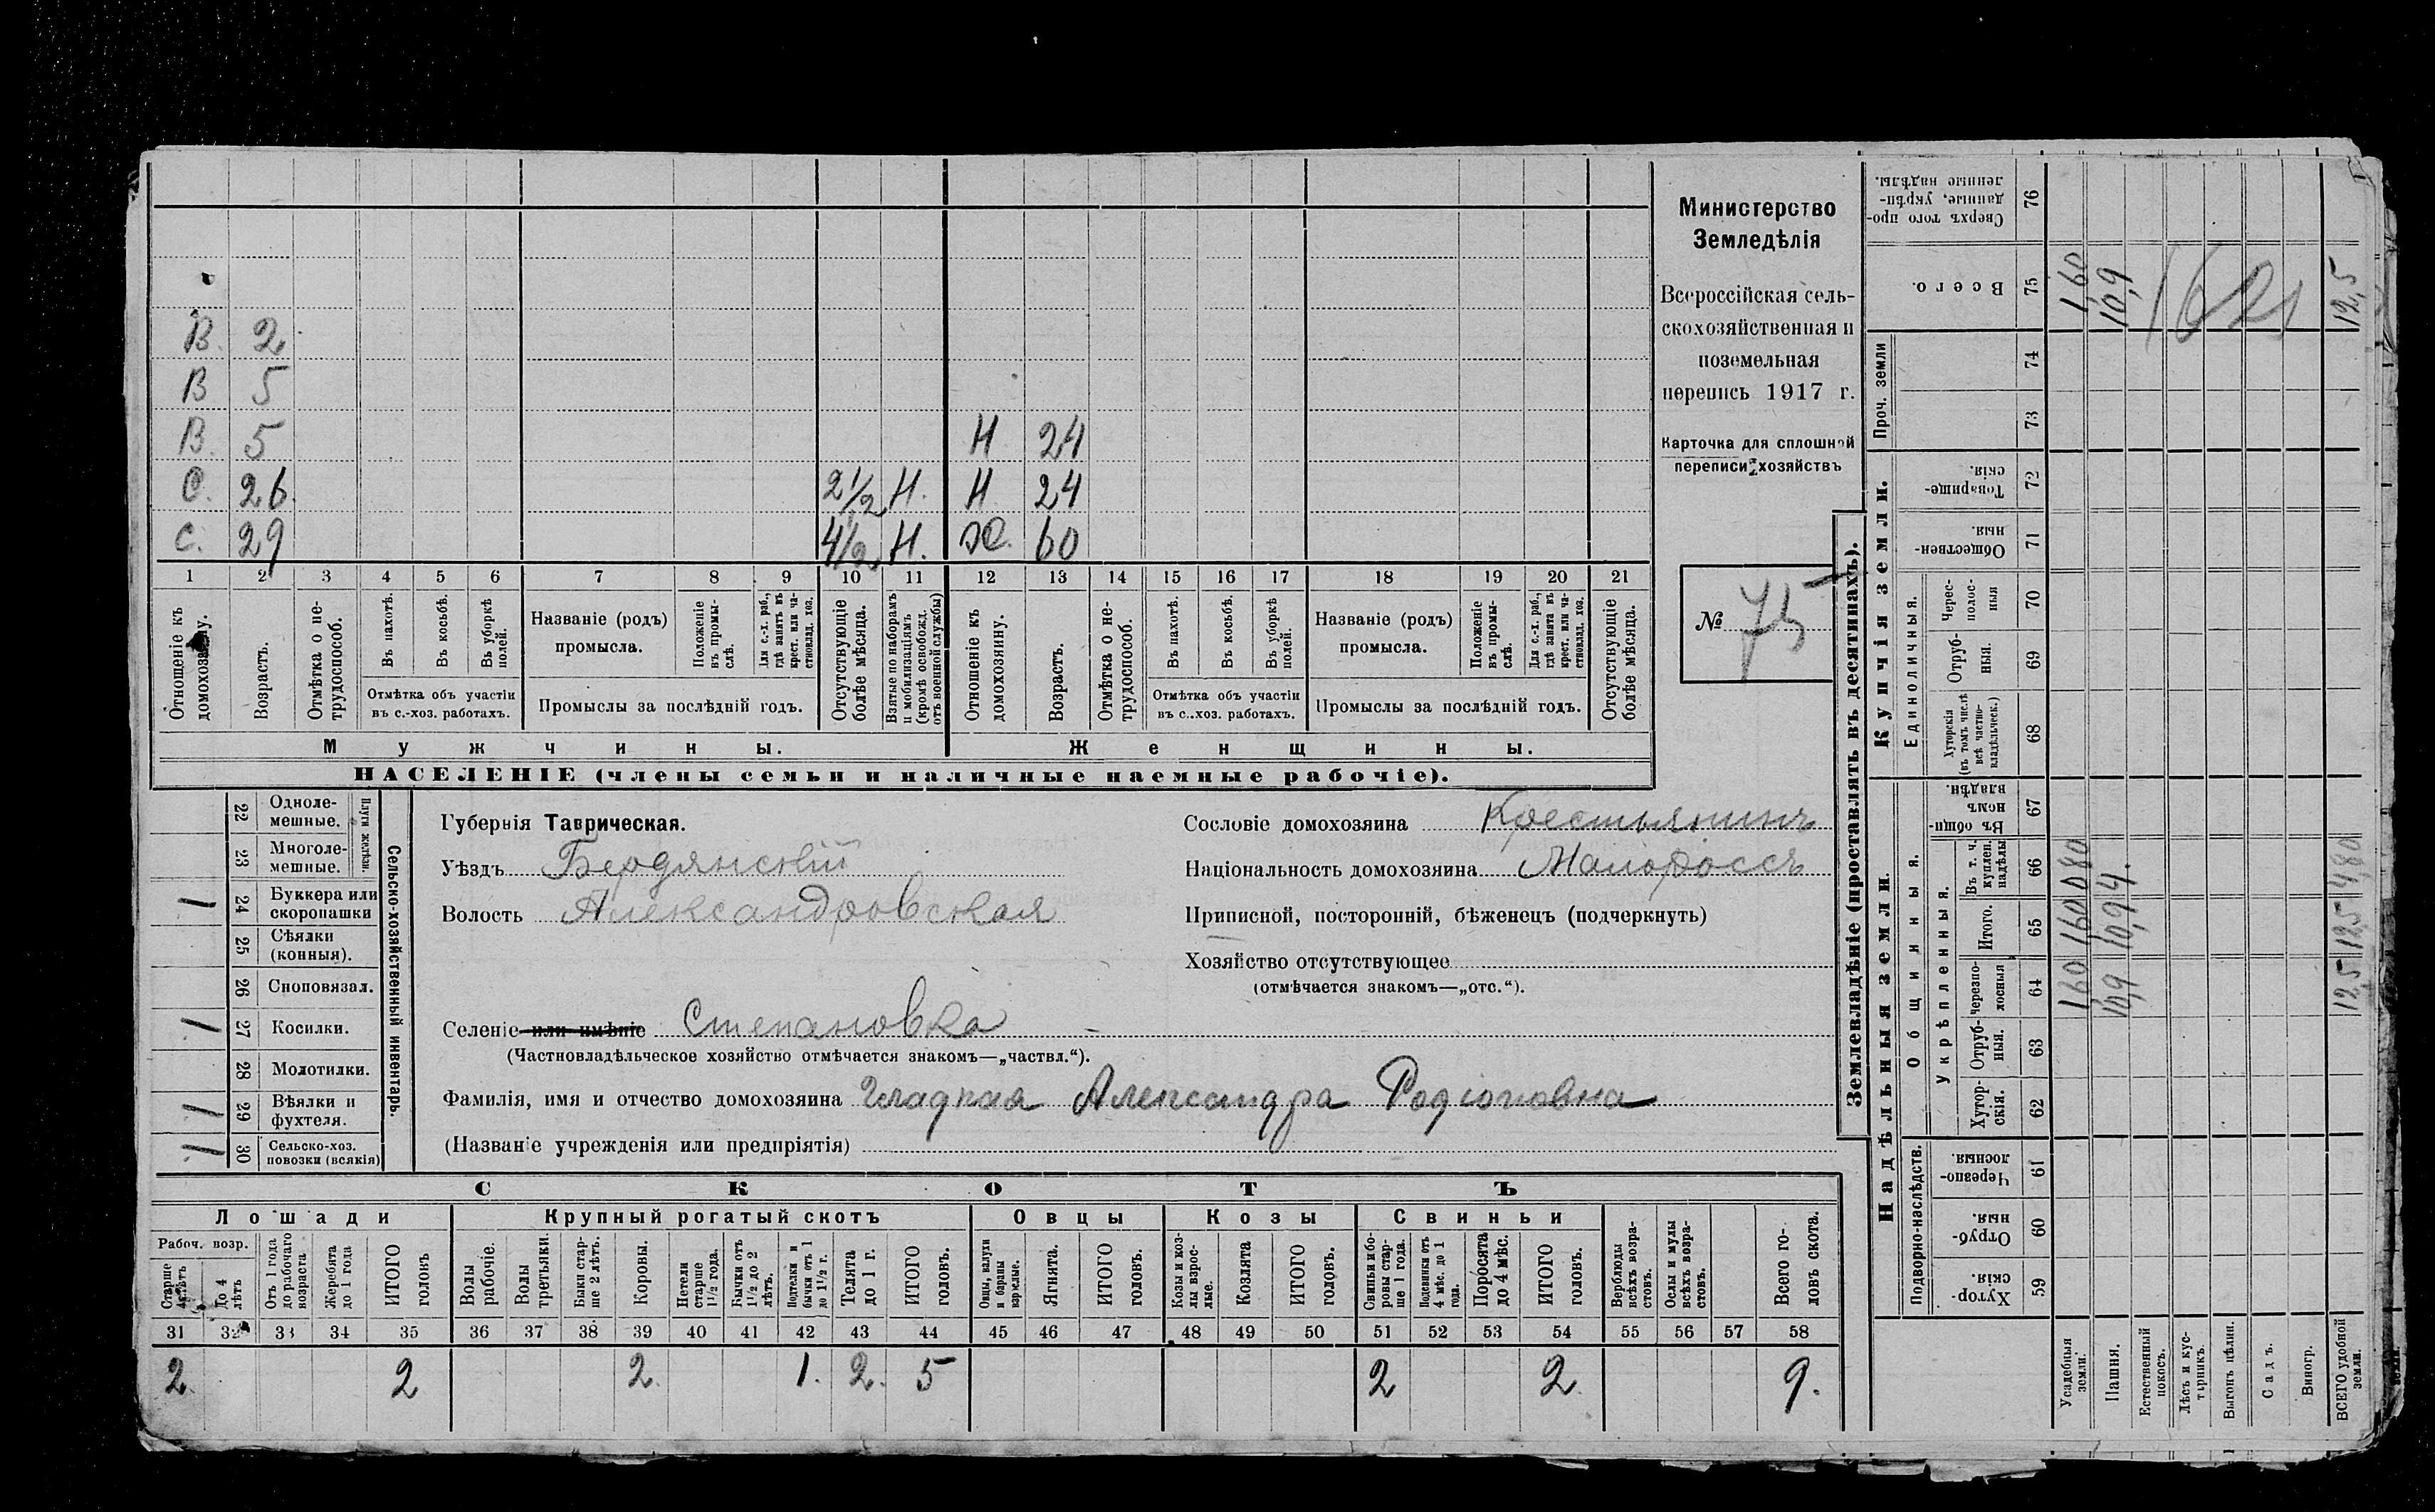 В. 2
В 5
В. 5 Н 24
С. 26. 2 1/2 Н. Н 24
С. 29 4 1/2 Н. Ж. 60
1 2 3 4 5 6 7 8 9 10 11 12 13 14 15 16 17 18 19 20 21
Отношеніе къ домохозяину.
Возрастъ.
Отмѣтка о не-
трудоспособ.
Въ пахотѣ.
Въ косьбѣ.
Въ уборкѣ
полей.
Отмѣтка объ участіи
въ с.-хоз. работахъ.
Названіе (родъ)
промысла.
Положеніе
въ промы-
слѣ.
Для с.-х. раб.,
гдѣ занятъ въ
крест. или ча-
стновлад. хоз.
Промыслы за послѣдній годъ.
Отсутствующіе
болѣе мѣсяца.
Взятые по наборамъ
и мобилизаціямъ
(кромѣ освобожд.
отъ военной службы)
Отношеніе къ
домохозяину.
Возрастъ.
Отмѣтка о не-
трудоспособ.
Въ пахотѣ.
Въ косьбѣ.
Въ уборкѣ
полей.
Отмѣтка объ участіи
въ с.-хоз. работахъ.
Названіе (родъ)
промысла.
Положеніе
въ промы-
слѣ.
Для с.-х. раб.,
гдѣ занята въ
крест. или ча-
стновлад. хоз.
Промыслы за послѣдній годъ.
Отсутствующіе
болѣе мѣсяца.
Мужчины. Женщины.
НАСЕЛЕНІЕ (члены семьи и наличные наемные рабочіе).
Министерство
Земледѣлія
Всероссійская сель-
скохозяйственная и
поземельная
перепись 1917 г.
Карточка для сплошной
переписи хозяйствъ
№ 75
Сельско-хозяйственный инвентарь.
Плуги желѣзн.
22 Одноле-
мешные.
23 Многоле-
мешные.
1 24 Буккера или
скоропашки
25 Сѣялки
(конныя).
26 Сноповязал.
1 27 Косилки.
28 Молотилки.
1 29 Вѣялки и
фухтеля.
1 30 Сельско-хоз.
повозки (всякія)
Губернія Таврическая.
Уѣздъ Бердянскій
Волость Александровская
Селеніе или имѣніе Степановка
(Частновладѣльческое хозяйство отмѣчается знакомъ—„частвл.“).
Фамилія, имя и отчество домохозяина Гладкая Александра Родіоновна
(Названіе учрежденія или предпріятія)
Сословіе домохозяина Крестьянинъ
Національность домохозяина Малороссъ
Приписной, посторонній, бѣженецъ (подчеркнуть)
Хозяйство отсутствующее
(отмѣчается знакомъ—„отс.“).
СКОТЪ
Лошади Крупный рогатый скотъ Овцы Козы Свиньи
Рабоч. возр.
Старше
4 лѣтъ
До 4
лѣтъ
Отъ 1 года
до рабочаго
возраста
Жеребята
до 1 года
ИТОГО
головъ
Волы
рабочіе.
Волы
третьяки.
Быки стар-
ше 2 лѣтъ.
Коровы.
Нетели
старше
1 1/2 года.
Бычки отъ
1 1/2 до 2
лѣтъ.
Подтелки и
бычки отъ 1
до 1 1/2 г.
Телята
до 1 г.
ИТОГО
головъ.
Овцы, валухи
и бараны
взрослые.
Ягнята.
ИТОГО
головъ.
Козы и коз-
лы взрос-
лые.
Козлята
ИТОГО
головъ.
Свиньи и бо-
ровы стар-
ше 1 года.
Подсвинки отъ
4 мѣс. до 1
года.
Поросята
до 4 мѣс.
ИТОГО
головъ.
Верблюды
всѣхъ возра-
стовъ.
Ослы и мулы
всѣхъ возра-
стовъ.
Всего го-
ловъ скота.
31 32 33 34 35 36 37 38 39 40 41 42 43 44 45 46 47 48 49 50 51 52 53 54 55 56 57 58
2 2 2. 1. 2. 5 2 2 9.
Землевладѣніе (проставлять въ десятинахъ).
Надѣльныя земли.
Купчія земли.
Проч. земли
Подворно-наслѣдств.
Общинныя.
Укрѣпленныя.
Единоличныя.
59 Хутор-
скія.
60 Отруб-
ныя.
61 Черезпо-
лосныя.
62 Хутор-
скія.
63 Отруб-
ныя.
64 Черезпо-
лосныя
65 Итого.
66 Въ т. ч.
куплен.
надѣлы
67 Въ общи-
номъ
владѣн.
68 Хуторскія
(въ томъ числѣ
всѣ частно-
владѣльческ.)
69 Отруб-
ныя.
70 Черес-
полос-
ныя
71 Обществен-
ныя.
72 Товарище-
скія.
73
74
75 Всего.
76 Сверхъ того про-
данные, укрѣп-
ленные надѣлы.
Усадебныя
земли. 160 160 080 1,60
Пашня. 10,9 10,9 4. 10,9
Естественный
покосъ.
Лѣсъ и кус-
тарникъ.
Выгонъ цѣлин.
Садъ.
Виногр.
ВСЕГО удобной
земли. 12,5 12,5 4,80 12,5
1621